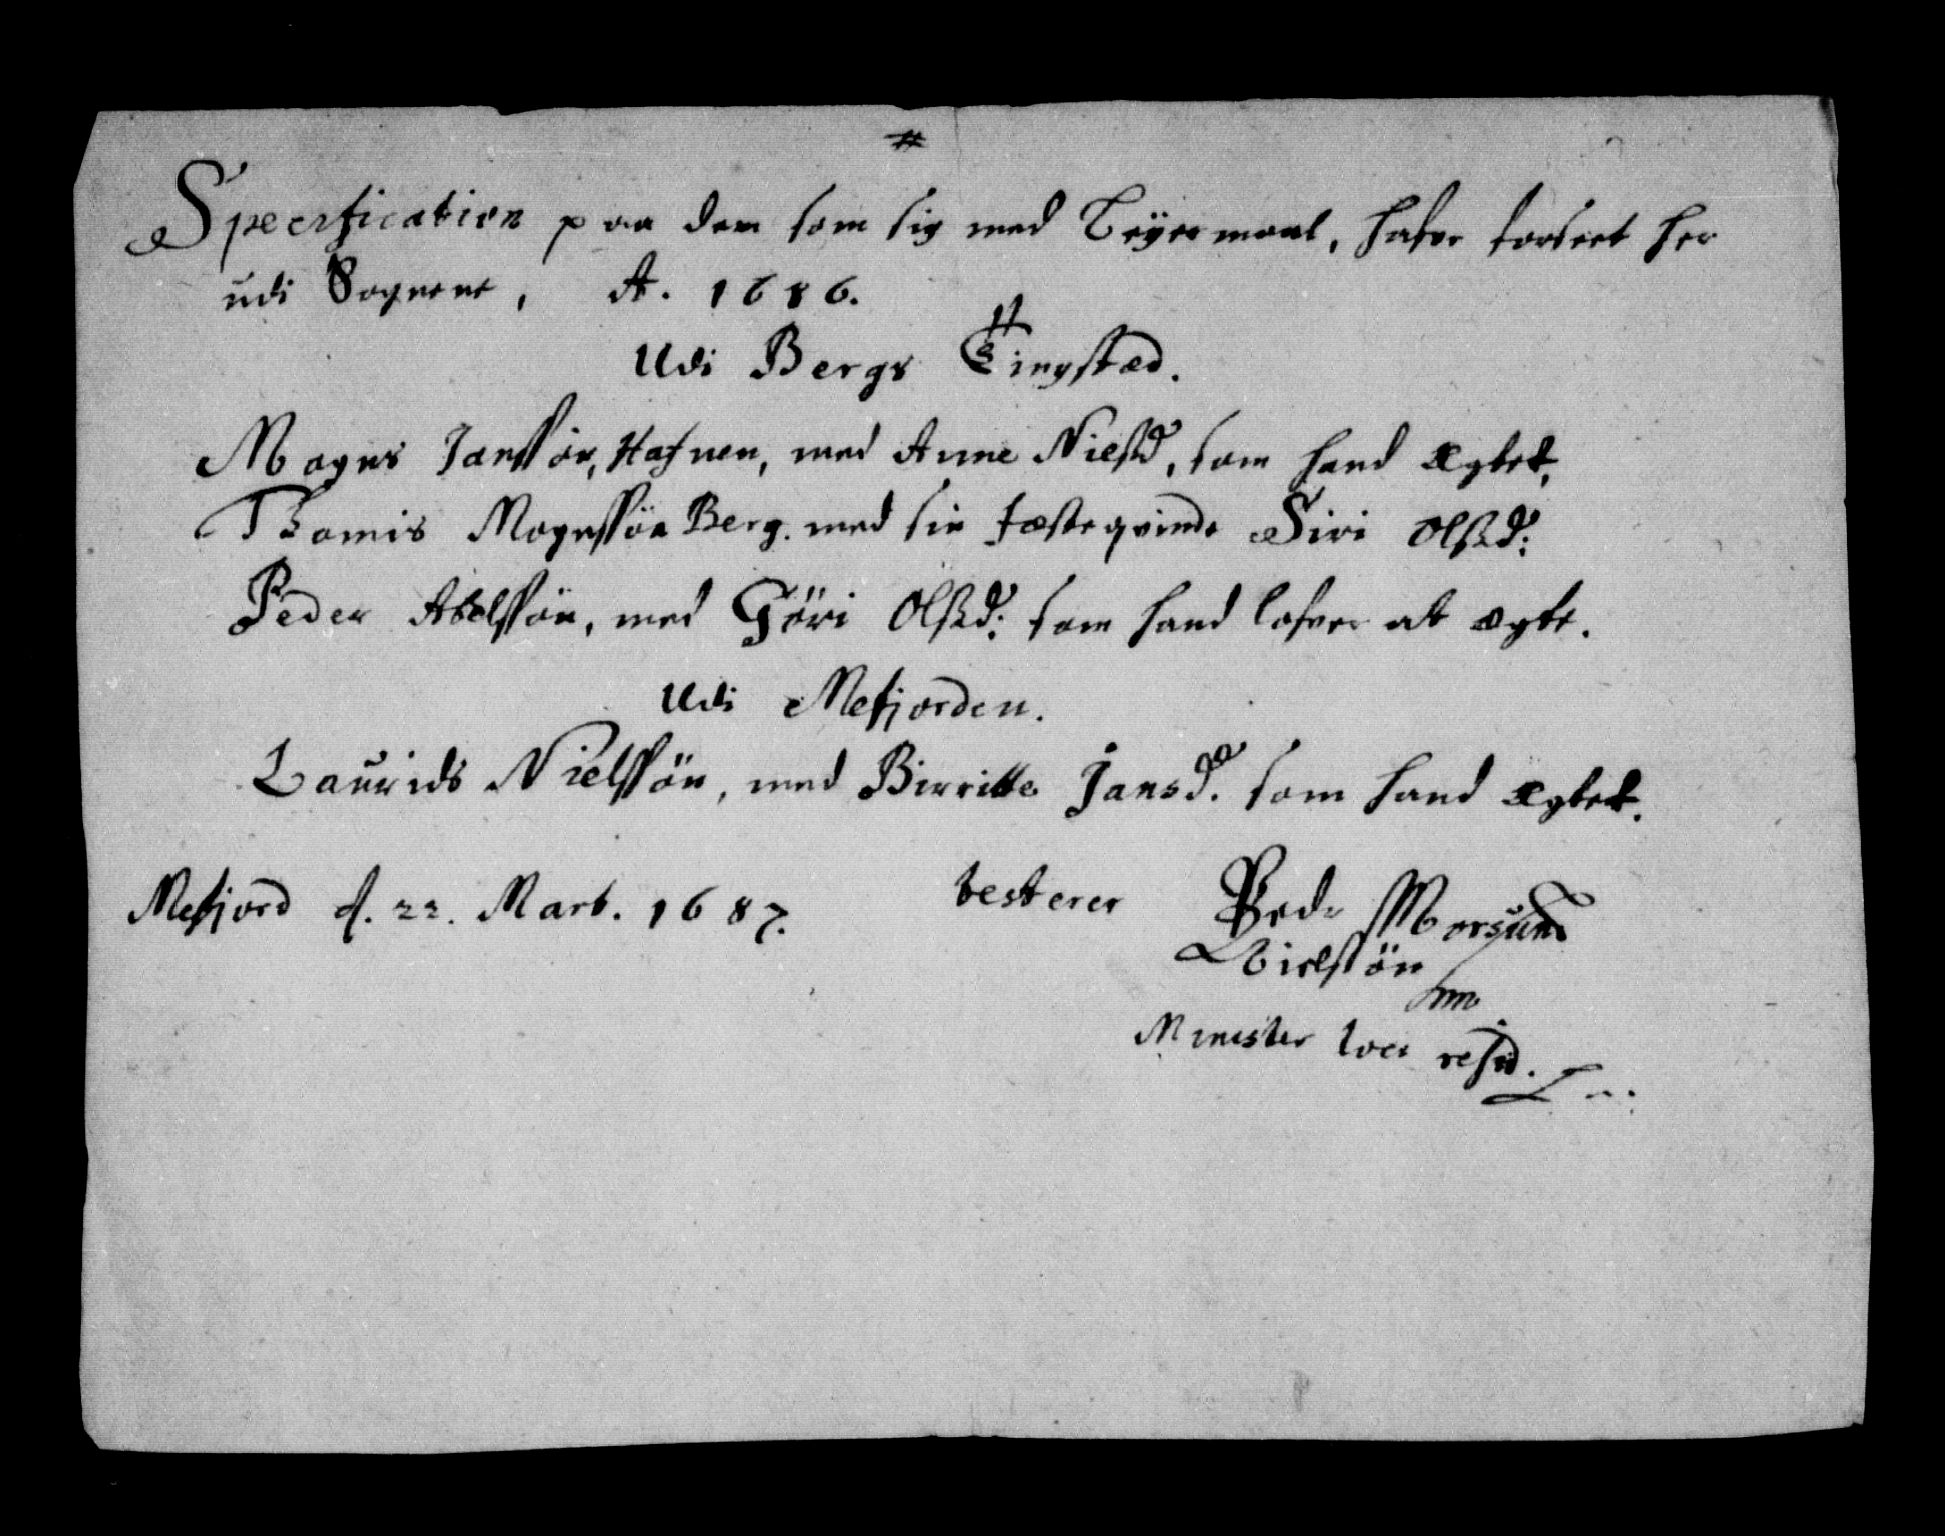 Specification paa dem som sig med Leÿermaal, hafver forseet her
udi Sognene, A. 1686.
Udi Bergs Tingstæd.
Mogns Jansßön, Hafnen, med Anne Nielsd, som hand ægtet,
Thomis Mognsßön Berg. med sin fæsteqvinde Siri Olsd:
Peder Abelsßön, med Göri Olsd: som hand lofver at ægte.
Udi Mefjorden.
Laurids Nielsßön, med Birritte Jansd. som hand ægtet.
Mefjord d. 22. Mart. 1687. testerer Peder Morsüm
Nielsßön
Minister loci resid.